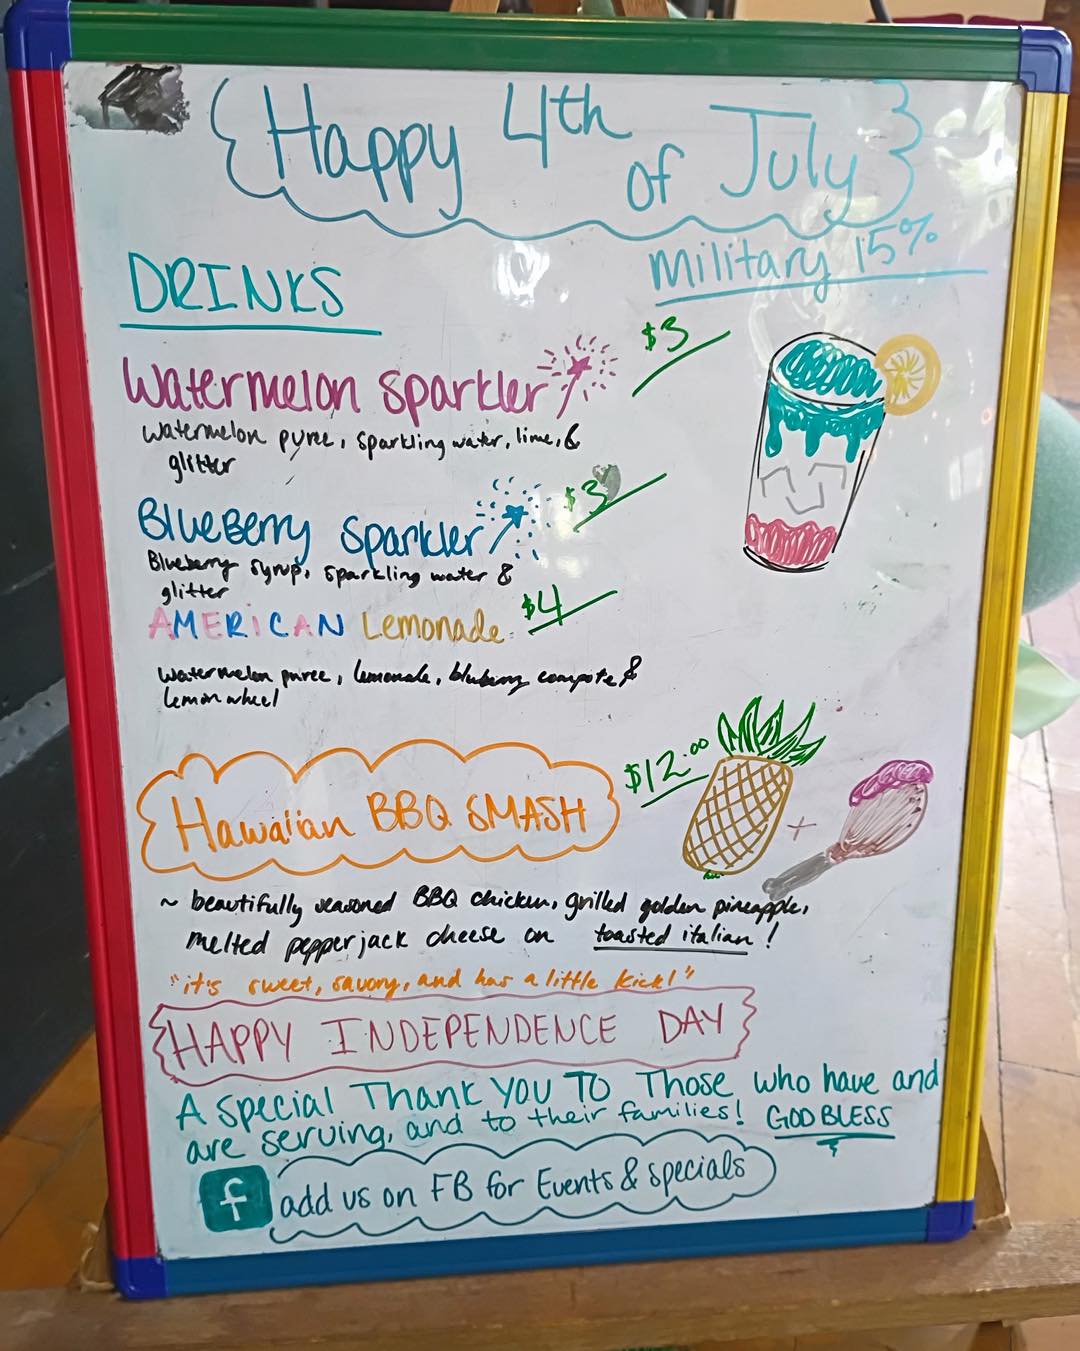 Happy 4th of July
Military 15%
DRINKS
Watermelon Sparkler $3
Watermelon puree, sparkling water, lime, &
glitter
BlueBerry Sparkler $3
Blueberry syrup, sparkling water &
glitter
AMERiCAN Lemonade $4
Watermelon puree, lemonade, bluberry compote &
lemon wheel
Hawaiian BBQ SMASH $12.00
+
~ beautifully seasoned BBQ chicken, grilled golden pineapple,
melted pepperjack cheese on toasted italian!
"it's sweet, savory, and has a little kick!"
HAPPY INDEPENDENCE DAY
A Special Thank You To Those who have and
are serving, and to their families! GOD BLESS
f add us on FB for Events & specials